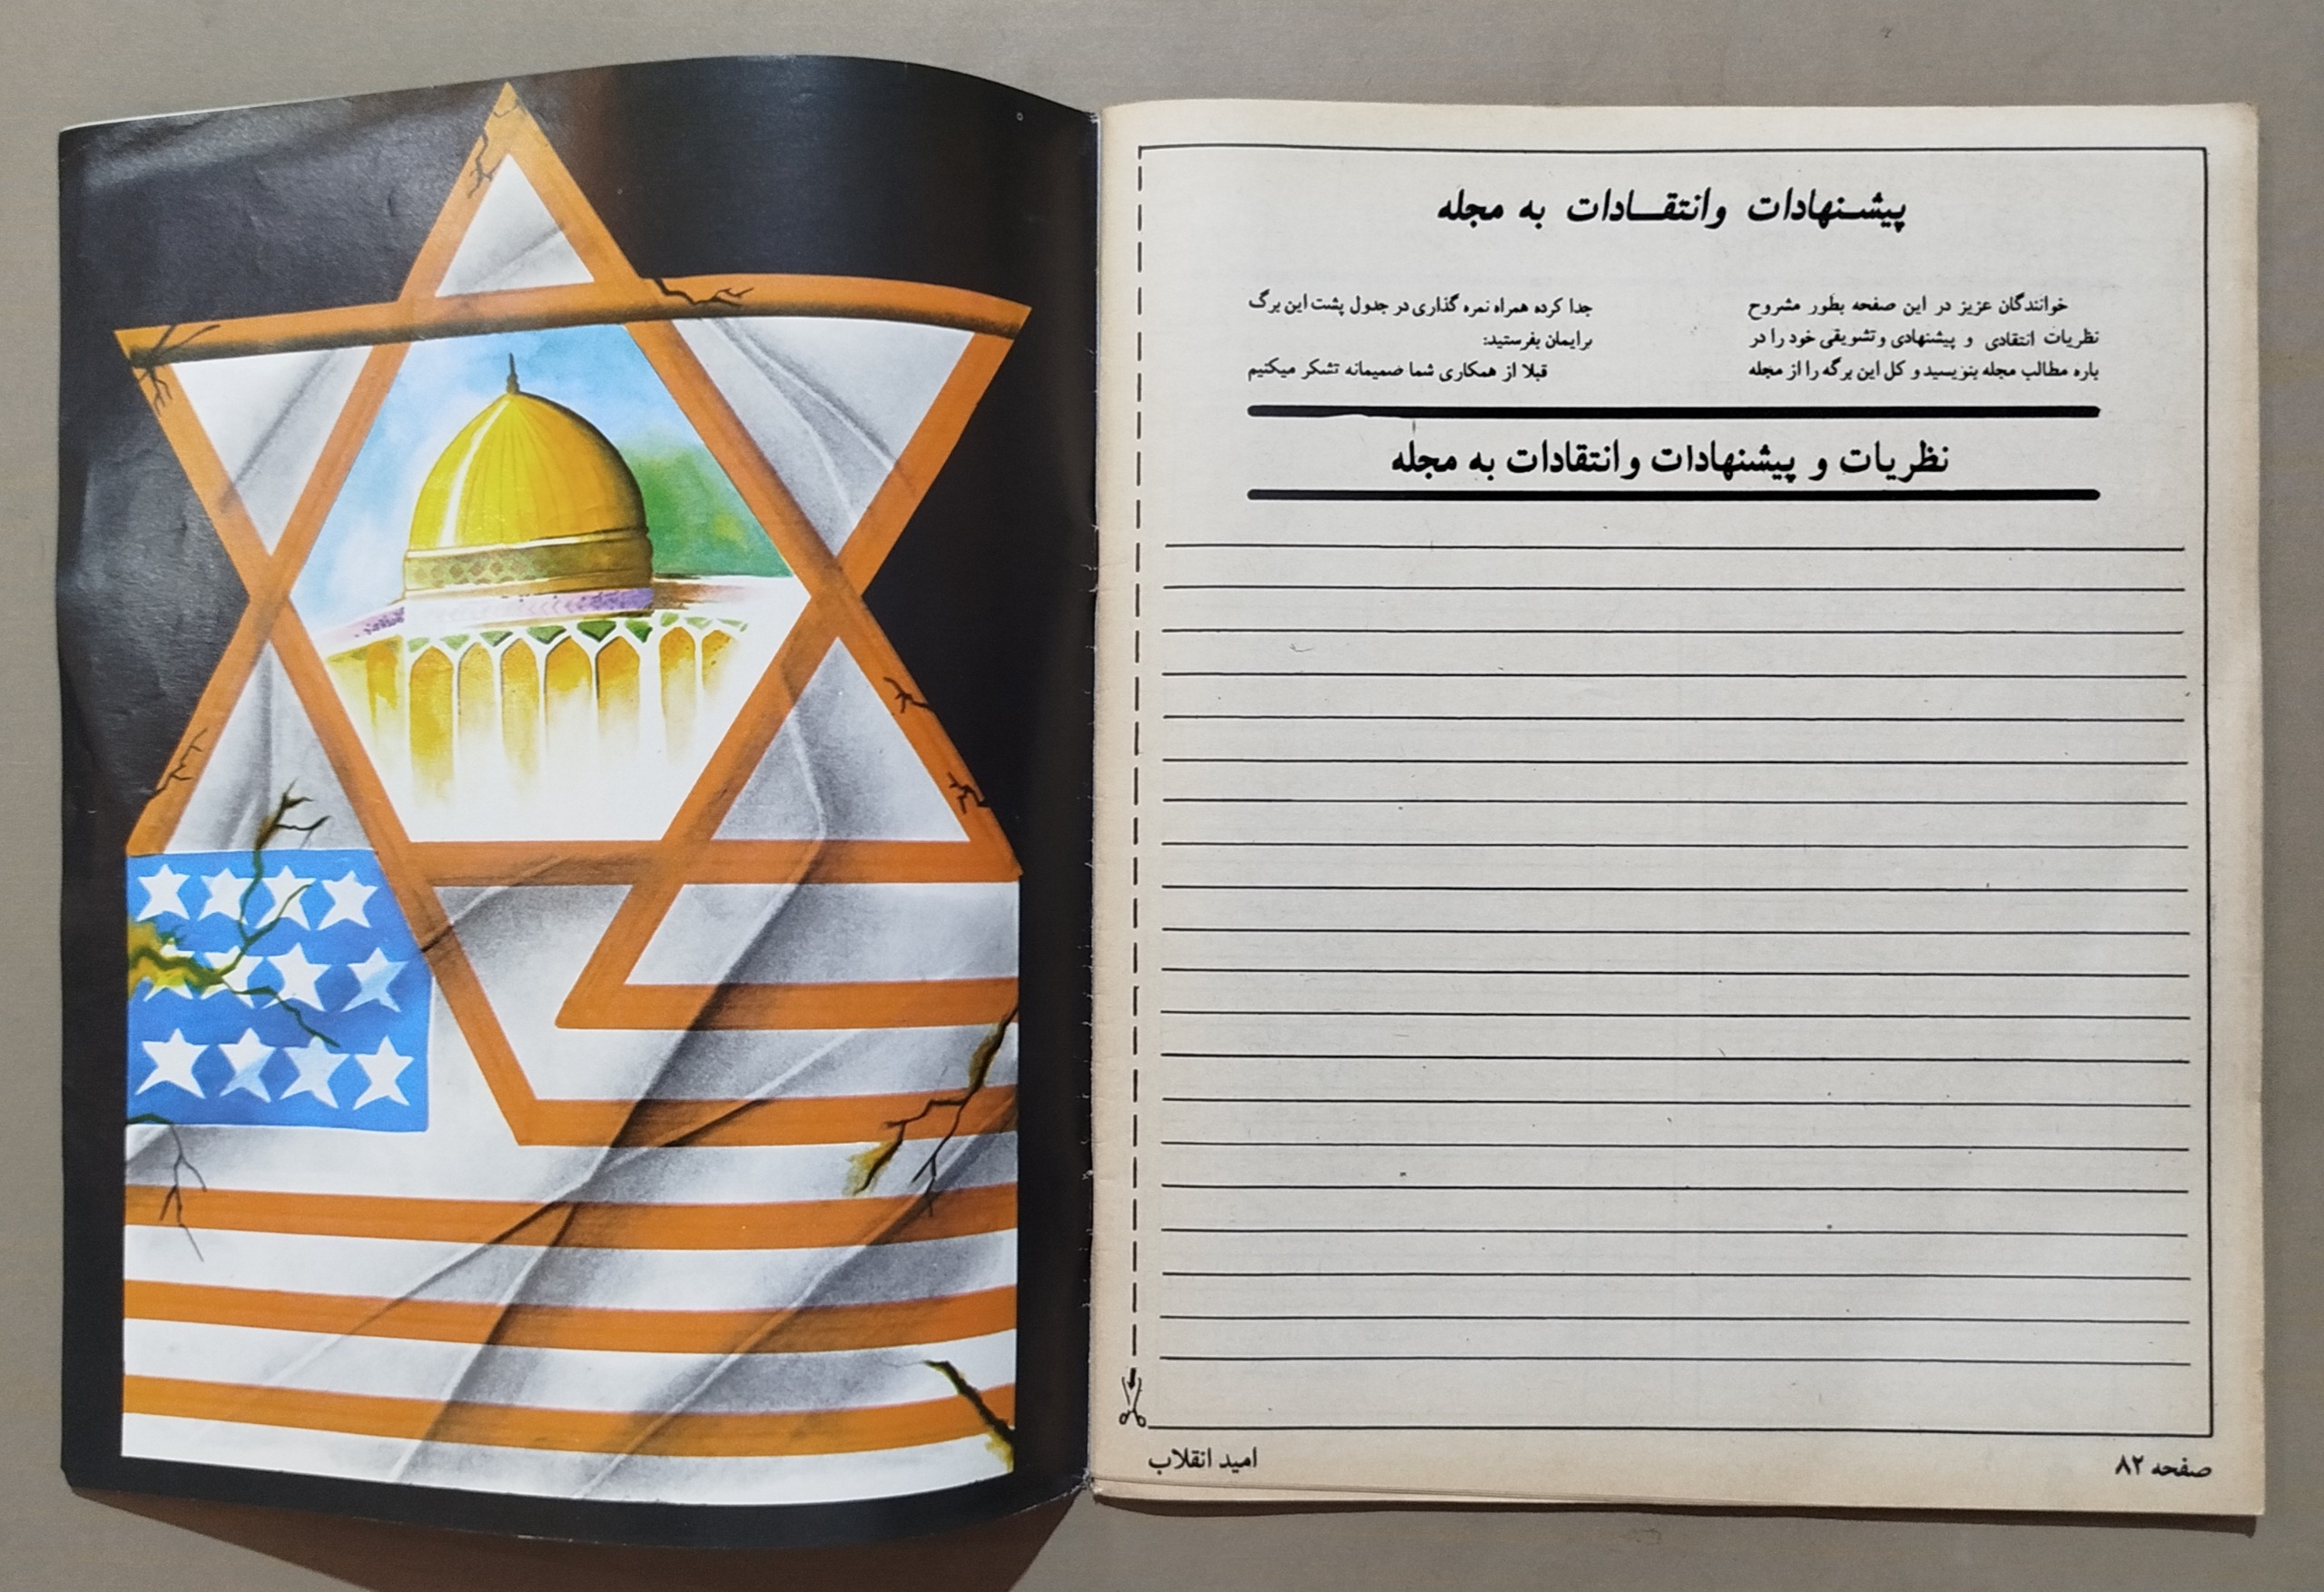 پیشنهادات وانتقادات به مجله
خوانندگان عزیز در این صفحه بطور مشروح
نظریات انتقادی و پیشنهادی وتشویقی خود را در
باره مطالب مجله بنویسید و کل این برگه را از مجله
جدا کرده همراه نمره گذاری در جدول پشت این برگ
برایمان بفرستید:
قبلا از همکاری شما صمیمانه تشکر میکنیم
نظریات و پیشنهادات وانتقادات به مجله
صفحه ۸۲
امید انقلاب